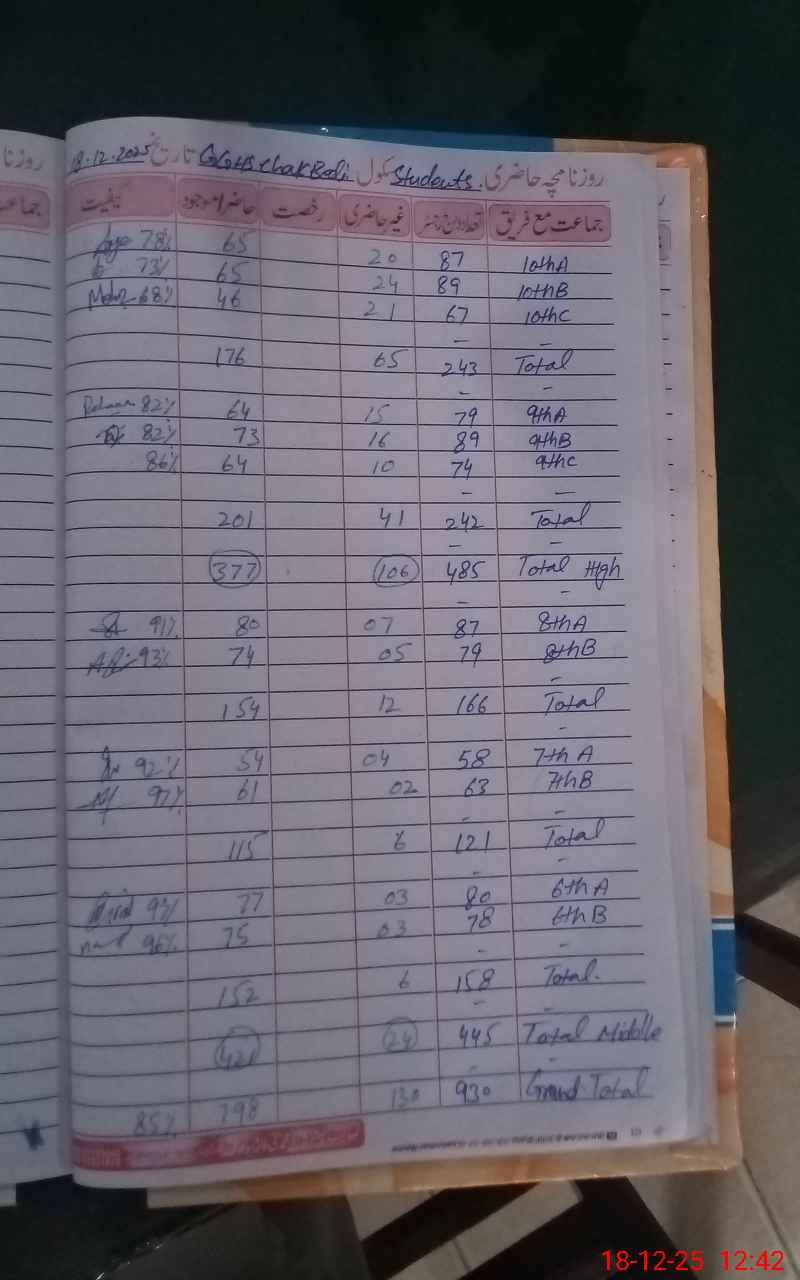 روزنامچہ حاضری Students. سکول GGHS Chak Beli تاریخ 18.12.2025
جماعت مع فریق تعداد درج رجسٹر غیر حاضری رخصت حاضر/موجود کیفیت
10thA 87 20 65 78%
10thB 89 24 65 73%
10thC 67 21 46 68%
- -
Total 243 65 176
- -
9thA 79 15 64 82%
9thB 89 16 73 82%
9thC 74 10 64 86%
- -
Total 242 41 201
- -
Total High 485 106 377
- -
8thA 87 07 80 91%
8thB 79 05 74 93%
-
Total 166 12 154
-
7thA 58 04 54 92%
7thB 63 02 61 97%
- -
Total 121 6 115
- -
6thA 80 03 77
6thB 78 03 75 96%
- -
Total. 158 6 152
- -
Total Middle 445 24 421
- -
Grand Total 930 130 798 85%
روزنا
جماعت
18-12-25 12:42